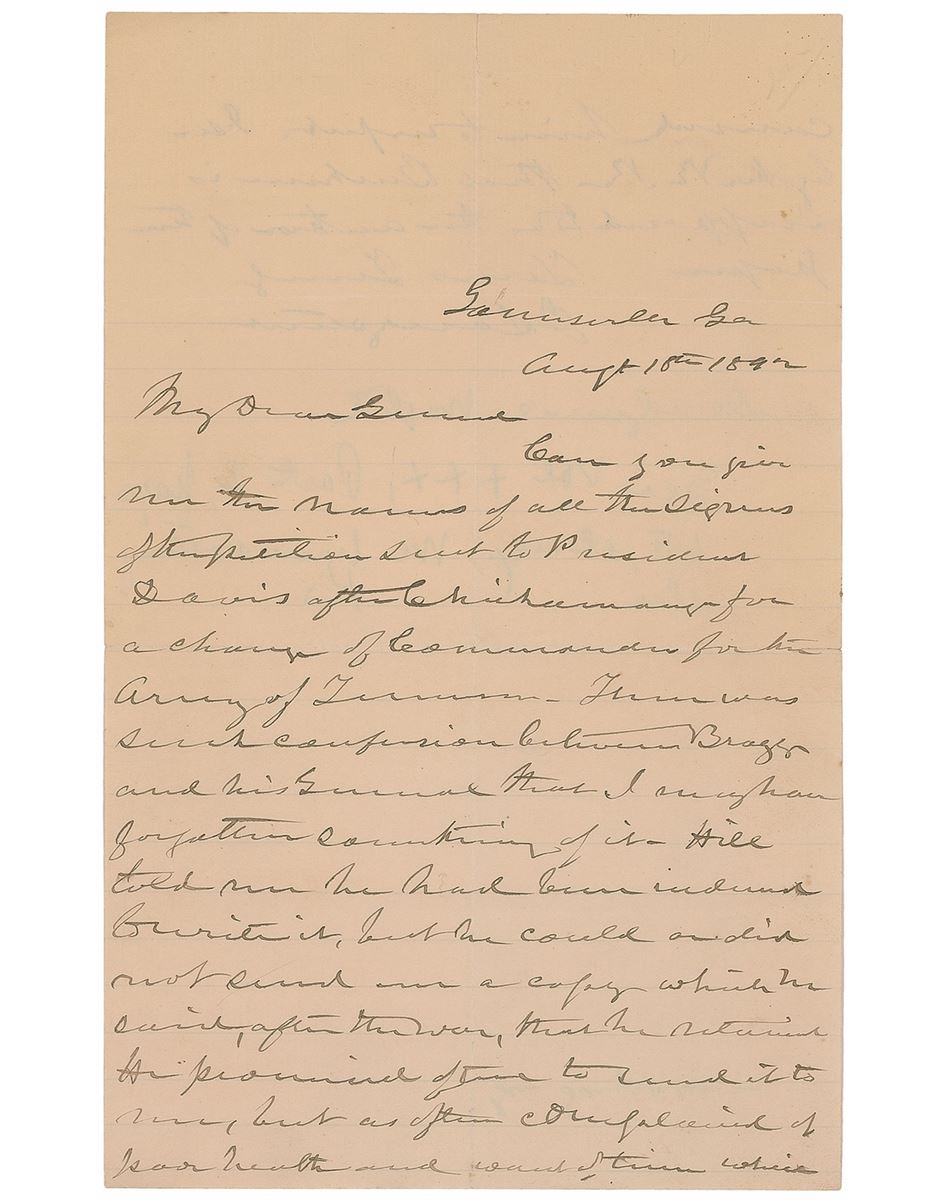 Gainesville Ga
Augt 18th 1892
My Dear General
Can you give
me the names of all the signers
of the petition sent to President
Davis after Chickamauga for
a change of Commander for the
Army of Tennessee - There was
such confusion between Bragg
and his General that I may have
forgotten something of it - Hill
told me he had been induced
to write it, but he could or did
not send me a copy which he
said, after the war, that he retained
He promised often to send it to
me, but as often complained of
poor health and want of time which